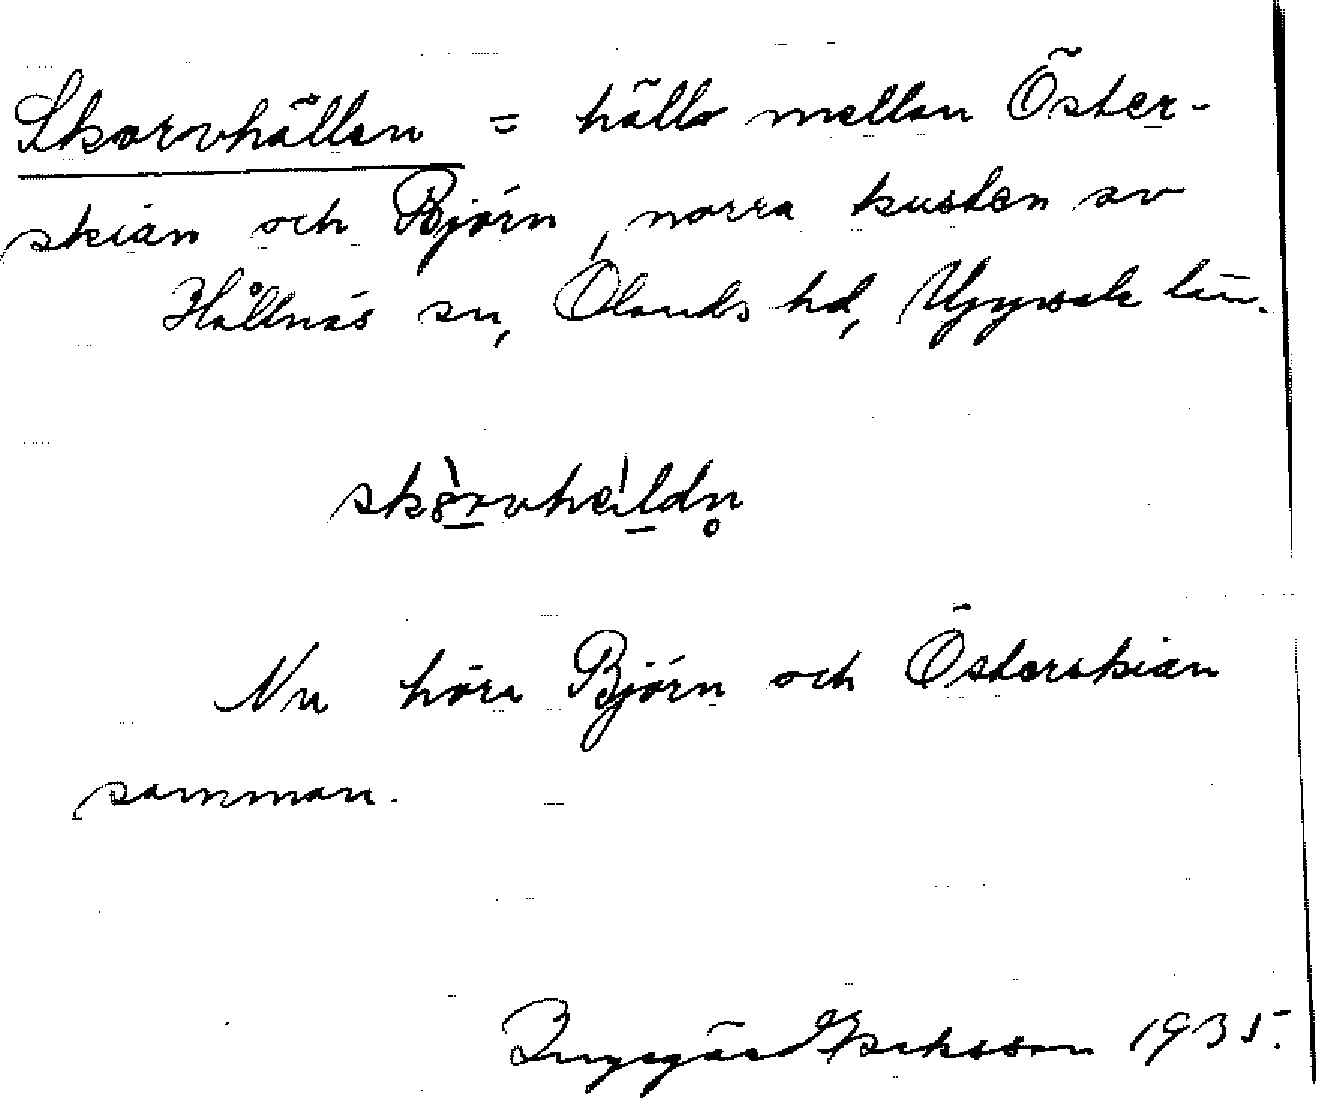 Skorvhällen = hälla mellan Öster-
skian och Björn, norra kusten av
Hållnäs sn, Ölands hd, Uppsala län.
skòrvhéldn̥
Nu höra Björn och Österskian
samman.
Ingegärd Eriksson 1935.